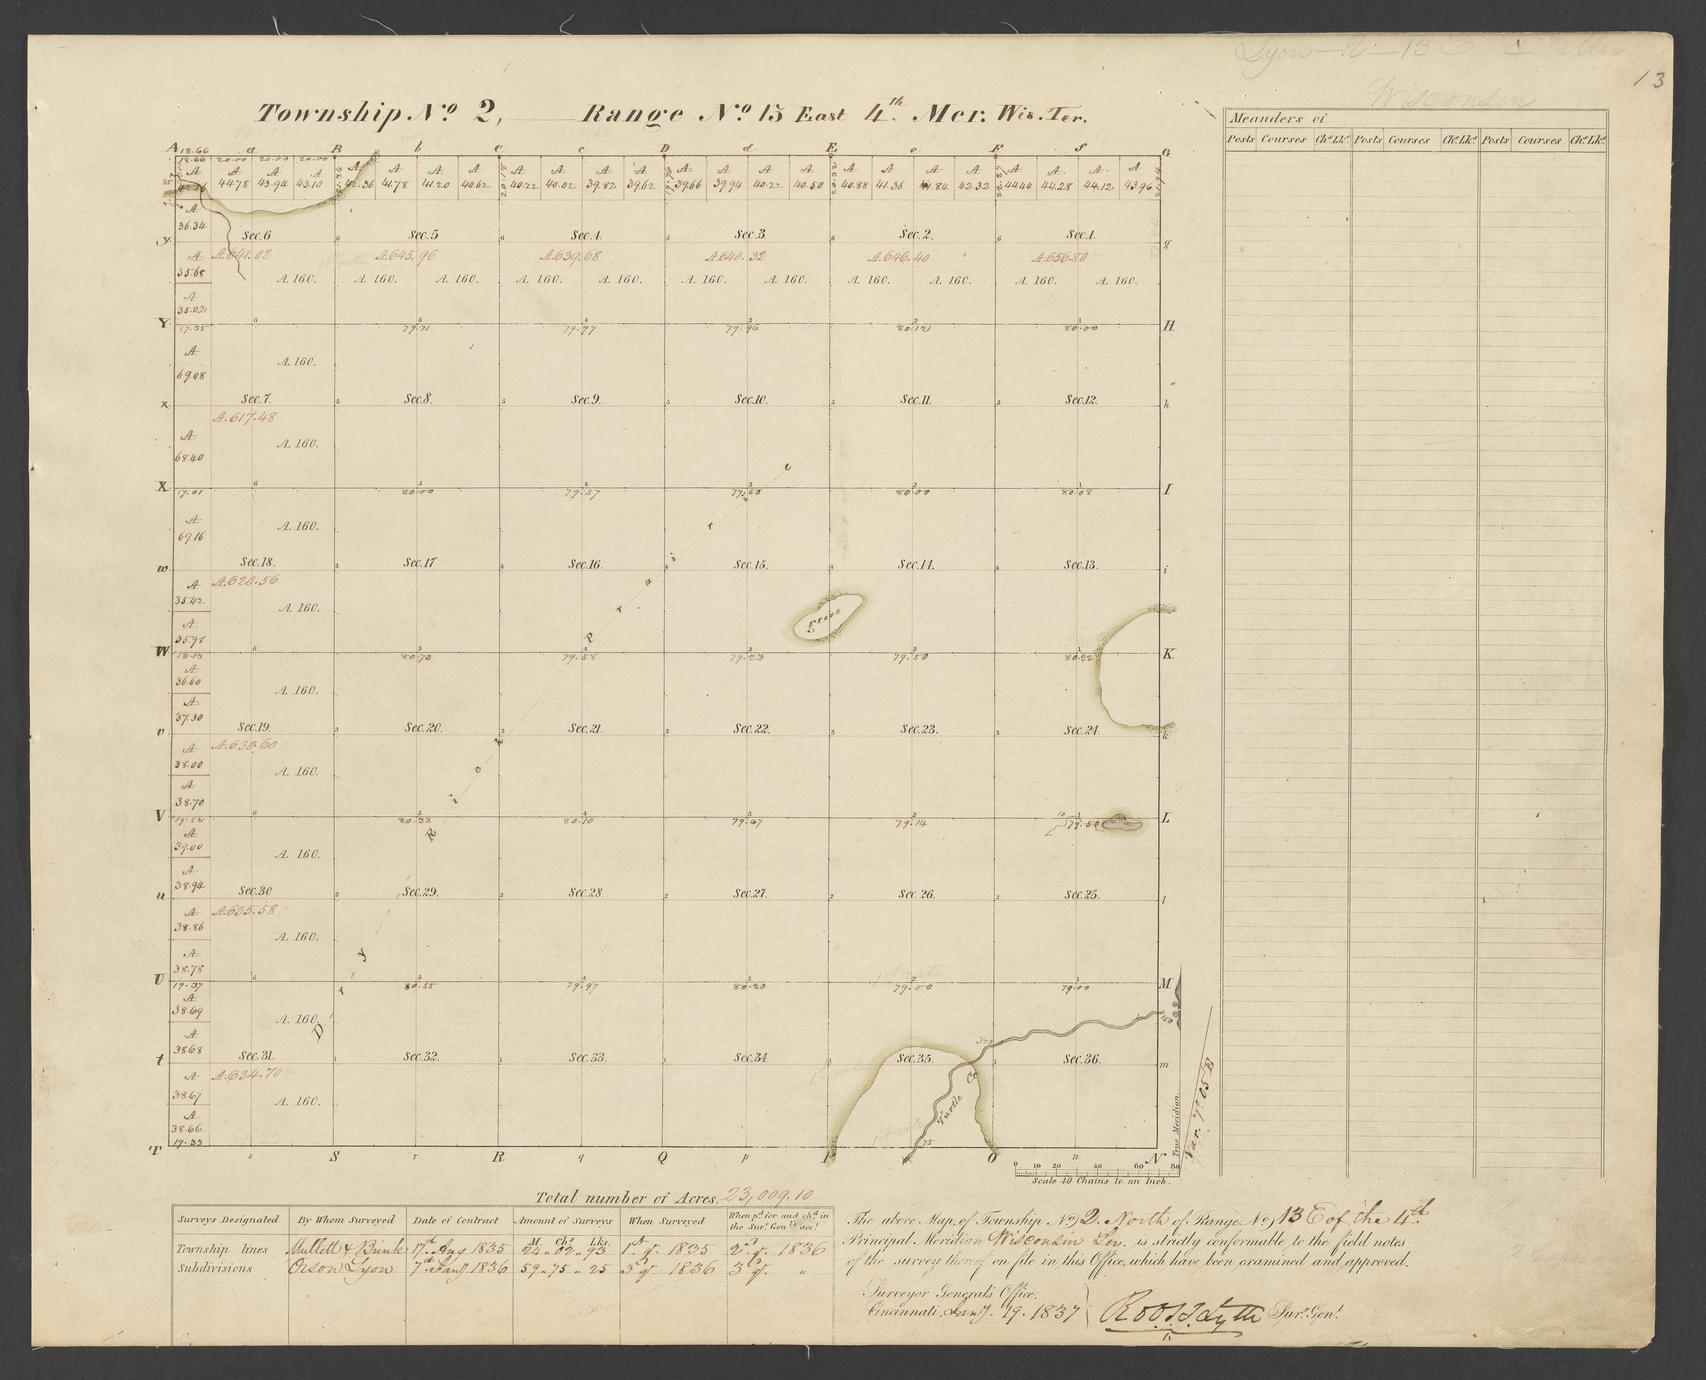 13
Wisconsin
Township No 2, Range No 13 East 4th Mer. Wis. Ter.
Meanders of
Posts Courses Chs Lks Posts Courses Chs Lks Posts Courses Chs Lks
A 18.66 a B b C c D d E e F f G
18.66 20.00 20.00 20.00
A A A A A A A A A A A A A A A A A A A A A A
44.78 43.94 43.10 42.36 41.78 41.20 40.62 40.22 40.02 39.82 39.62 39.66 39.94 40.22 40.50 40.88 41.36 41.84 42.32 44.44 44.28 44.12 43.96
A
36.34
Sec.6 Sec.5 Sec.4. Sec.3. Sec.2. Sec.1.
y g
A A.641.02 A.645.96 A.639.68 A.640.32 A.646.40 A.656.80
35.68 A.160. A.160. A.160. A.160. A.160. A.160. A.160. A.160. A.160. A.160. A.160.
A
35.02
Y H
17.35 79.71 79.77 79.96 80.00
A
69.08 A.160.
Sec.7. Sec.8. Sec.9. Sec.10. Sec.11. Sec.12.
x h
A.617.48
A
68.40 A.160.
X I
17.01 80.00 79.57 77.50 80.00 80.08
A
69.16 A.160.
Sec.18. Sec.17 Sec.16. Sec.15. Sec.14. Sec.13.
w i
A A.620.56
35.42 A.160.
Grove
A
35.98
W K
18.13 80.73 79.58 79.23 79.50 80.22
A
36.60 A.160.
A
37.30
Sec.19. Sec.20. Sec.21. Sec.22. Sec.23. Sec.24.
v k
A A.630.60
38.00 A.160.
A
38.70
V L
80.33 80.10 79.67 79.14 79.50
A
39.00 A.160.
A
38.94
Sec.30 Sec.29. Sec.28. Sec.27. Sec.26. Sec.25.
u l
A A.635.58
38.86 A.160.
A
38.78
U M
19.37 80.55 79.97 80.20 79.00 79.00
A
38.69 A.160.
Dry Rolling Prairie
A
38.68
Sec.31. Sec.32. Sec.33. Sec.34 Sec.35. Sec.36.
t m
A A.634.70
38.67 A.160.
Turtle Cr
A
38.66
19.33
T s S r R q Q p P O n N
True Meridian
Var. 7°.05 E
0 10 20 40 60 80
Scale 40 Chains to an Inch.
Total number of Acres. 23,009.10
Surveys Designated By Whom Surveyed Date of Contract Amount of Surveys When Surveyed When pd. for and chd. in the Sur. Genls acct.
M. Chs Lks.
Township lines Mullett & Brink 17th Aug 1835 24 " 02 " 93 1st qr. 1835 2d qr. 1836
Subdivisions Orson Lyon 7th Jany 1836 59 " 75 " 25 3d qr. 1836 3d qr. "
The above Map, of Township No 2. North of Range No 13 E of the 4th
Principal Meridian Wisconsin Ter. is strictly conformable to the field notes
of the survey thereof on file in this Office, which have been examined and approved.
Surveyor General's Office,
Cincinnati, Jany. 19. 1837
Robt T. Lytle Surr Genl